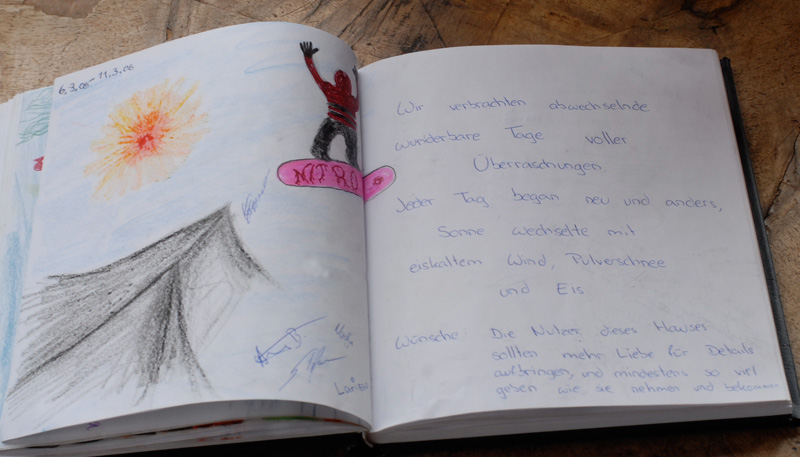 6.3.06 - 11.3.06
NITRO
Wir verbrachten abwechselnde
wunderbare Tage voller
Überraschungen.
Jeder Tag begann neu und anders,
Sonne wechselte mit
eiskaltem Wind, Pulverschnee
und Eis
Wünsche Die Nutzer dieses Hauses
sollten mehr Liebe für Details
aufbringen, und mindestens so viel
geben wie sie nehmen und bekommen